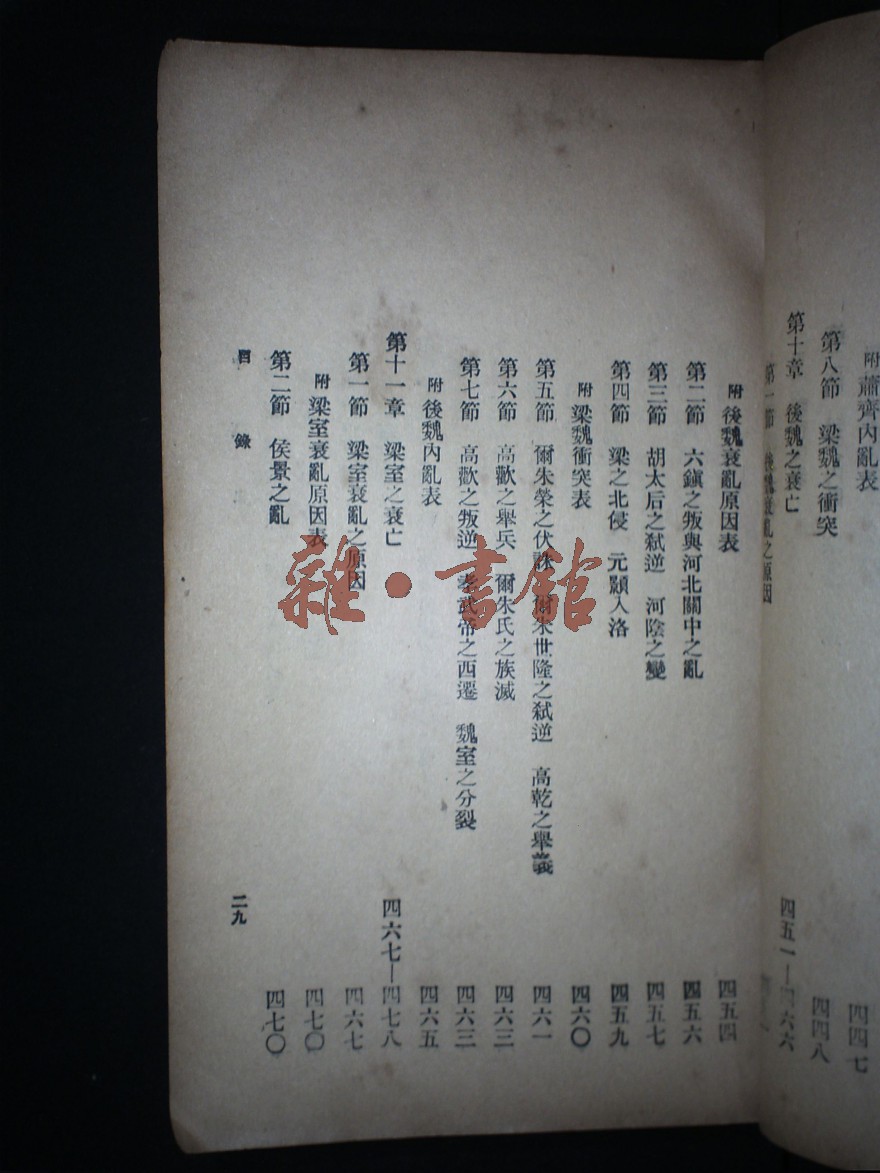 附 蕭齊內亂表 四四七
第八節 梁魏之衝突 四四八
第十章 後魏之衰亡 四五一—四六六
第一節 後魏衰亂之原因
附 後魏衰亂原因表 四五四
第二節 六鎮之叛與河北關中之亂 四五六
第三節 胡太后之弒逆 河陰之變 四五七
第四節 梁之北侵 元顥入洛 四五九
附 梁魏衝突表 四六〇
第五節 爾朱榮之伏誅 爾朱世隆之弒逆 高乾之舉義 四六一
第六節 高歡之舉兵 爾朱氏之族滅 四六三
第七節 高歡之叛逆 孝武帝之西遷 魏室之分裂 四六三
附 後魏內亂表 四六五
第十一章 梁室之衰亡 四六七—四七八
第一節 梁室衰亂之原因 四六七
附 梁室衰亂原因表 四七〇
第二節 侯景之亂 四七〇
目 錄 二九
雜·書館